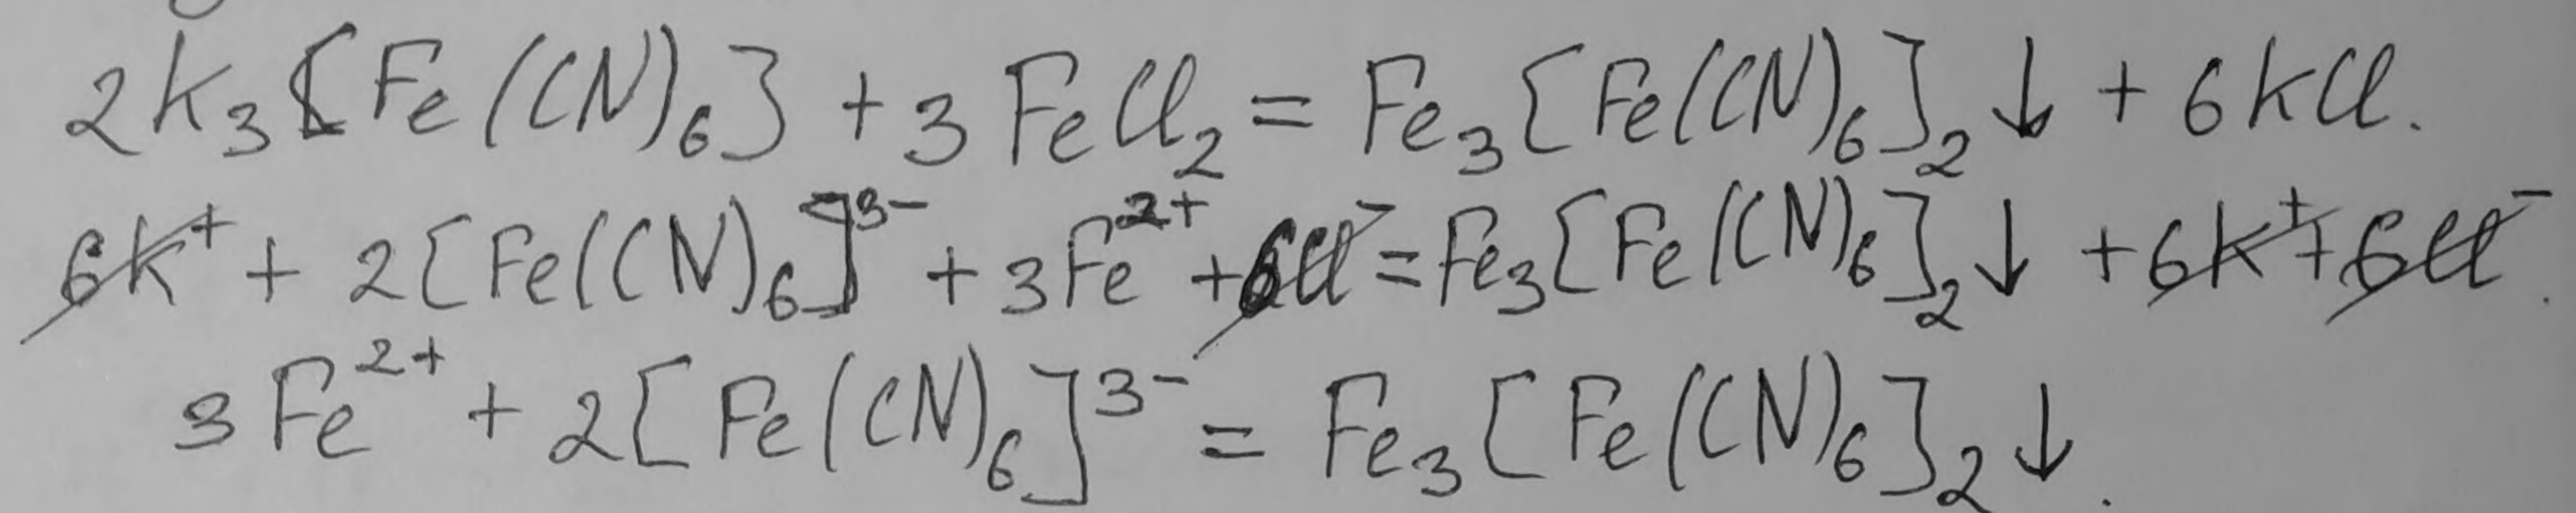 2K₃[Fe(CN)₆] + 3FeCl₂ = Fe₃[Fe(CN)₆]₂↓ + 6KCl.
6K⁺ + 2[Fe(CN)₆]³⁻ + 3Fe²⁺ + 6Cl⁻ = Fe₃[Fe(CN)₆]₂↓ + 6K⁺ + 6Cl⁻.
3Fe²⁺ + 2[Fe(CN)₆]³⁻ = Fe₃[Fe(CN)₆]₂↓.